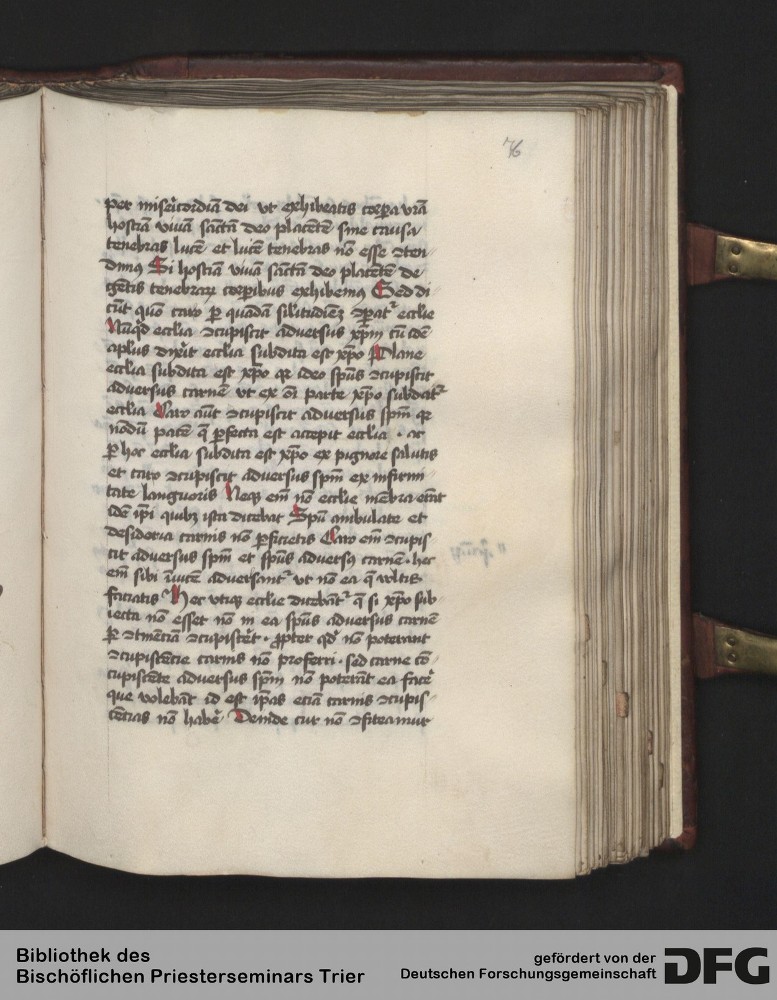 76
per misericordiā dei vt exhibeatis corpora vrā
hostiā viuā sāctā deo placētē sine causa
tenebras lucē et lucē tenebras nō esse ↄten
dimꝰ Si hostiā viuā sāctā deo placētē de
gētis tenebraꝝ corꝑibus exhibemꝰ Sed di
cūt quō caro ꝑ quādā sil'itudinē ↄꝑatᷣ ecclie
Nūqd ecclia ↄcupiscit aduersus xpm cū idē
aplus dixit ecclia subdita est xpo Plane
ecclia subdita est xpo qꝛ ideo spūs ↄcupiscit
aduersus carnē vt ex oī parte xpo subdatᷣ
ecclia Caro aūt ↄcupiscit aduersus spm qꝛ
nōdū pacē q̄ ꝑfecta est accepit ecclia · ac
ꝑ hoc ecclia subdita est xpo ex pignore salutis
et caro ↄcupiscit aduersus spm ex infirmi
tate languoris Neqꝫ em̄ nō ecclie mēbra erāt
idē ipī quibꝫ ista dicebat Spū ambulate et
desideria carnis nō ꝑficietis Caro em̄ ↄcupis
cit aduersus spm et spūs aduersꝰ carnē · hec
em̄ sibi īuicē aduersantᷣ vt nō ea q̄ vultis
faciatis Hec vtiqꝫ ecclie dicebātᷣ q̄ si xpo sub
iecta nō esset nō in ea spūs aduersus carnē
ꝑ ↄtinēciā ↄcupisceret · ꝓpter qd' nō poterant
ↄcupiscēcie carnis nō ꝑferri · sed carne cō
cupiscēte aduersus spm nō poterāt ea face
que volebāt id est ipas eciā carnis ↄcupis
cēcias nō habe Deinde cur nō ↄfiteamur
Bibliothek des
Bischöflichen Priesterseminars Trier
gefördert von der
Deutschen Forschungsgemeinschaft
DFG